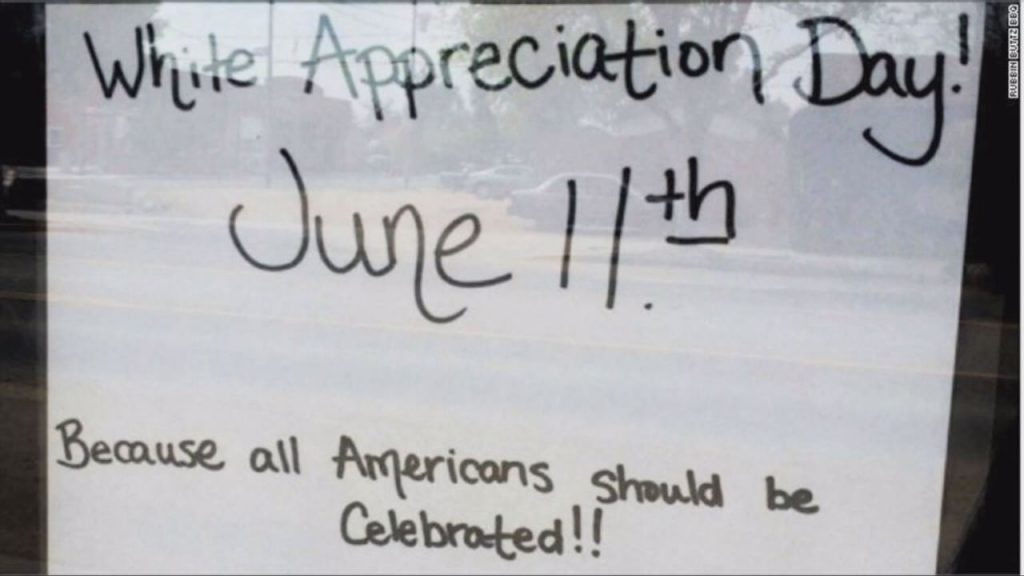 White Appreciation Day!
June 11th.
Because all Americans should be
Celebrated!!
RUBBIN BUTTZ BBQ